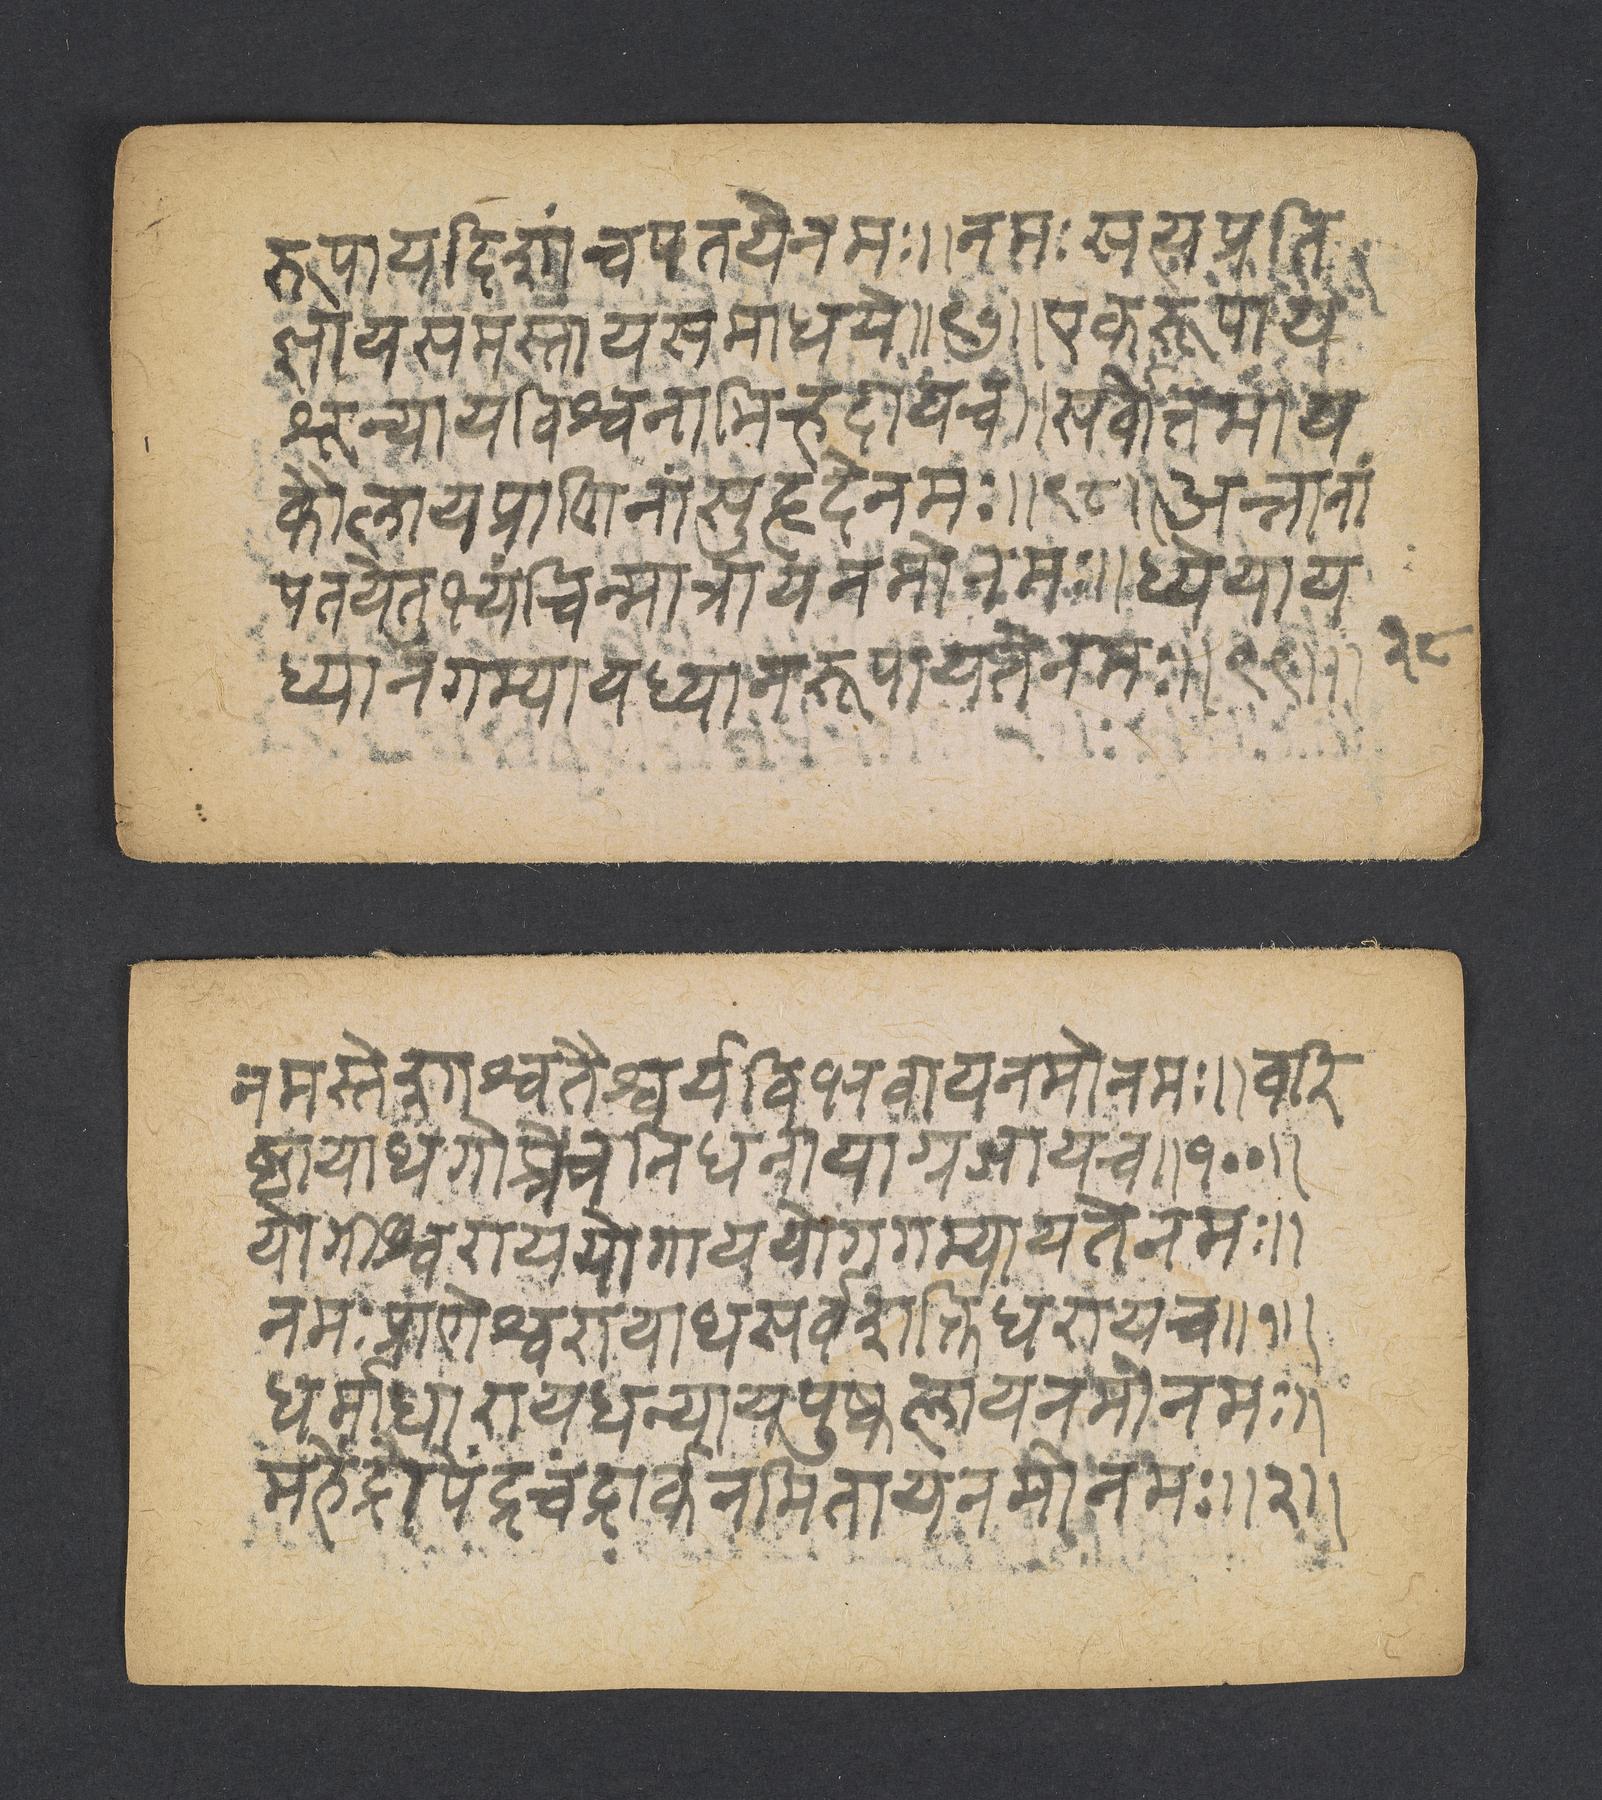 रूपायदिशांचपतयेनमः॥नमःसत्यप्रति
ज्ञायसमस्तायसमाधये॥९७॥एकरूपाय
श्रून्यायविश्वनाभिह्रदायच॥सर्वोत्तमाय
कौलायप्राणिनांसुहृदेनमः॥९८॥अन्नानां
पतयेतुभ्यंचिन्मात्रायनमोनमः॥ध्येयाय
ध्यानगम्यायध्यानरूपायतेनमः॥९९॥
२८
नमस्तेशाश्वतैश्वर्यविभवायनमोनमः॥वरि
ष्ठायाथगोप्त्रेचनिधनायाग्रजायच॥१००॥
योगीश्वराययोगाययोगगम्यायतेनमः॥
नमःप्राणेश्वरायाथसर्वशक्तिधरायच॥१॥
धर्माधारायधन्यायपुष्कलायनमोनमः॥
महेंद्रोपेंद्रचंद्रार्कनमितायनमोनमः॥२॥